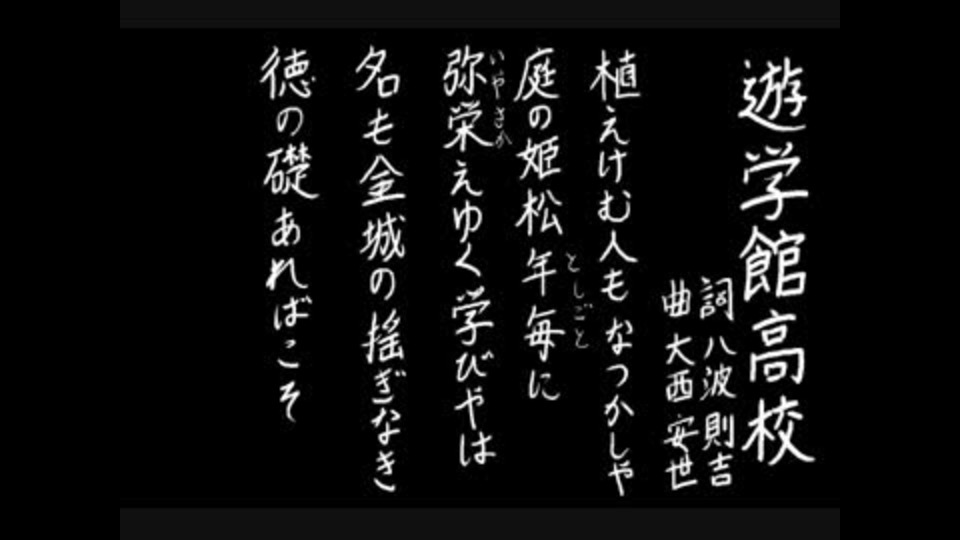 遊学館高校
詞 八波則吉
曲 大西安世
植えけむ人もなつかしや
庭の姫松年毎に
としごと
弥栄えゆく学びやは
いやさか
名も金城の揺ぎなき
徳の礎あればこそ